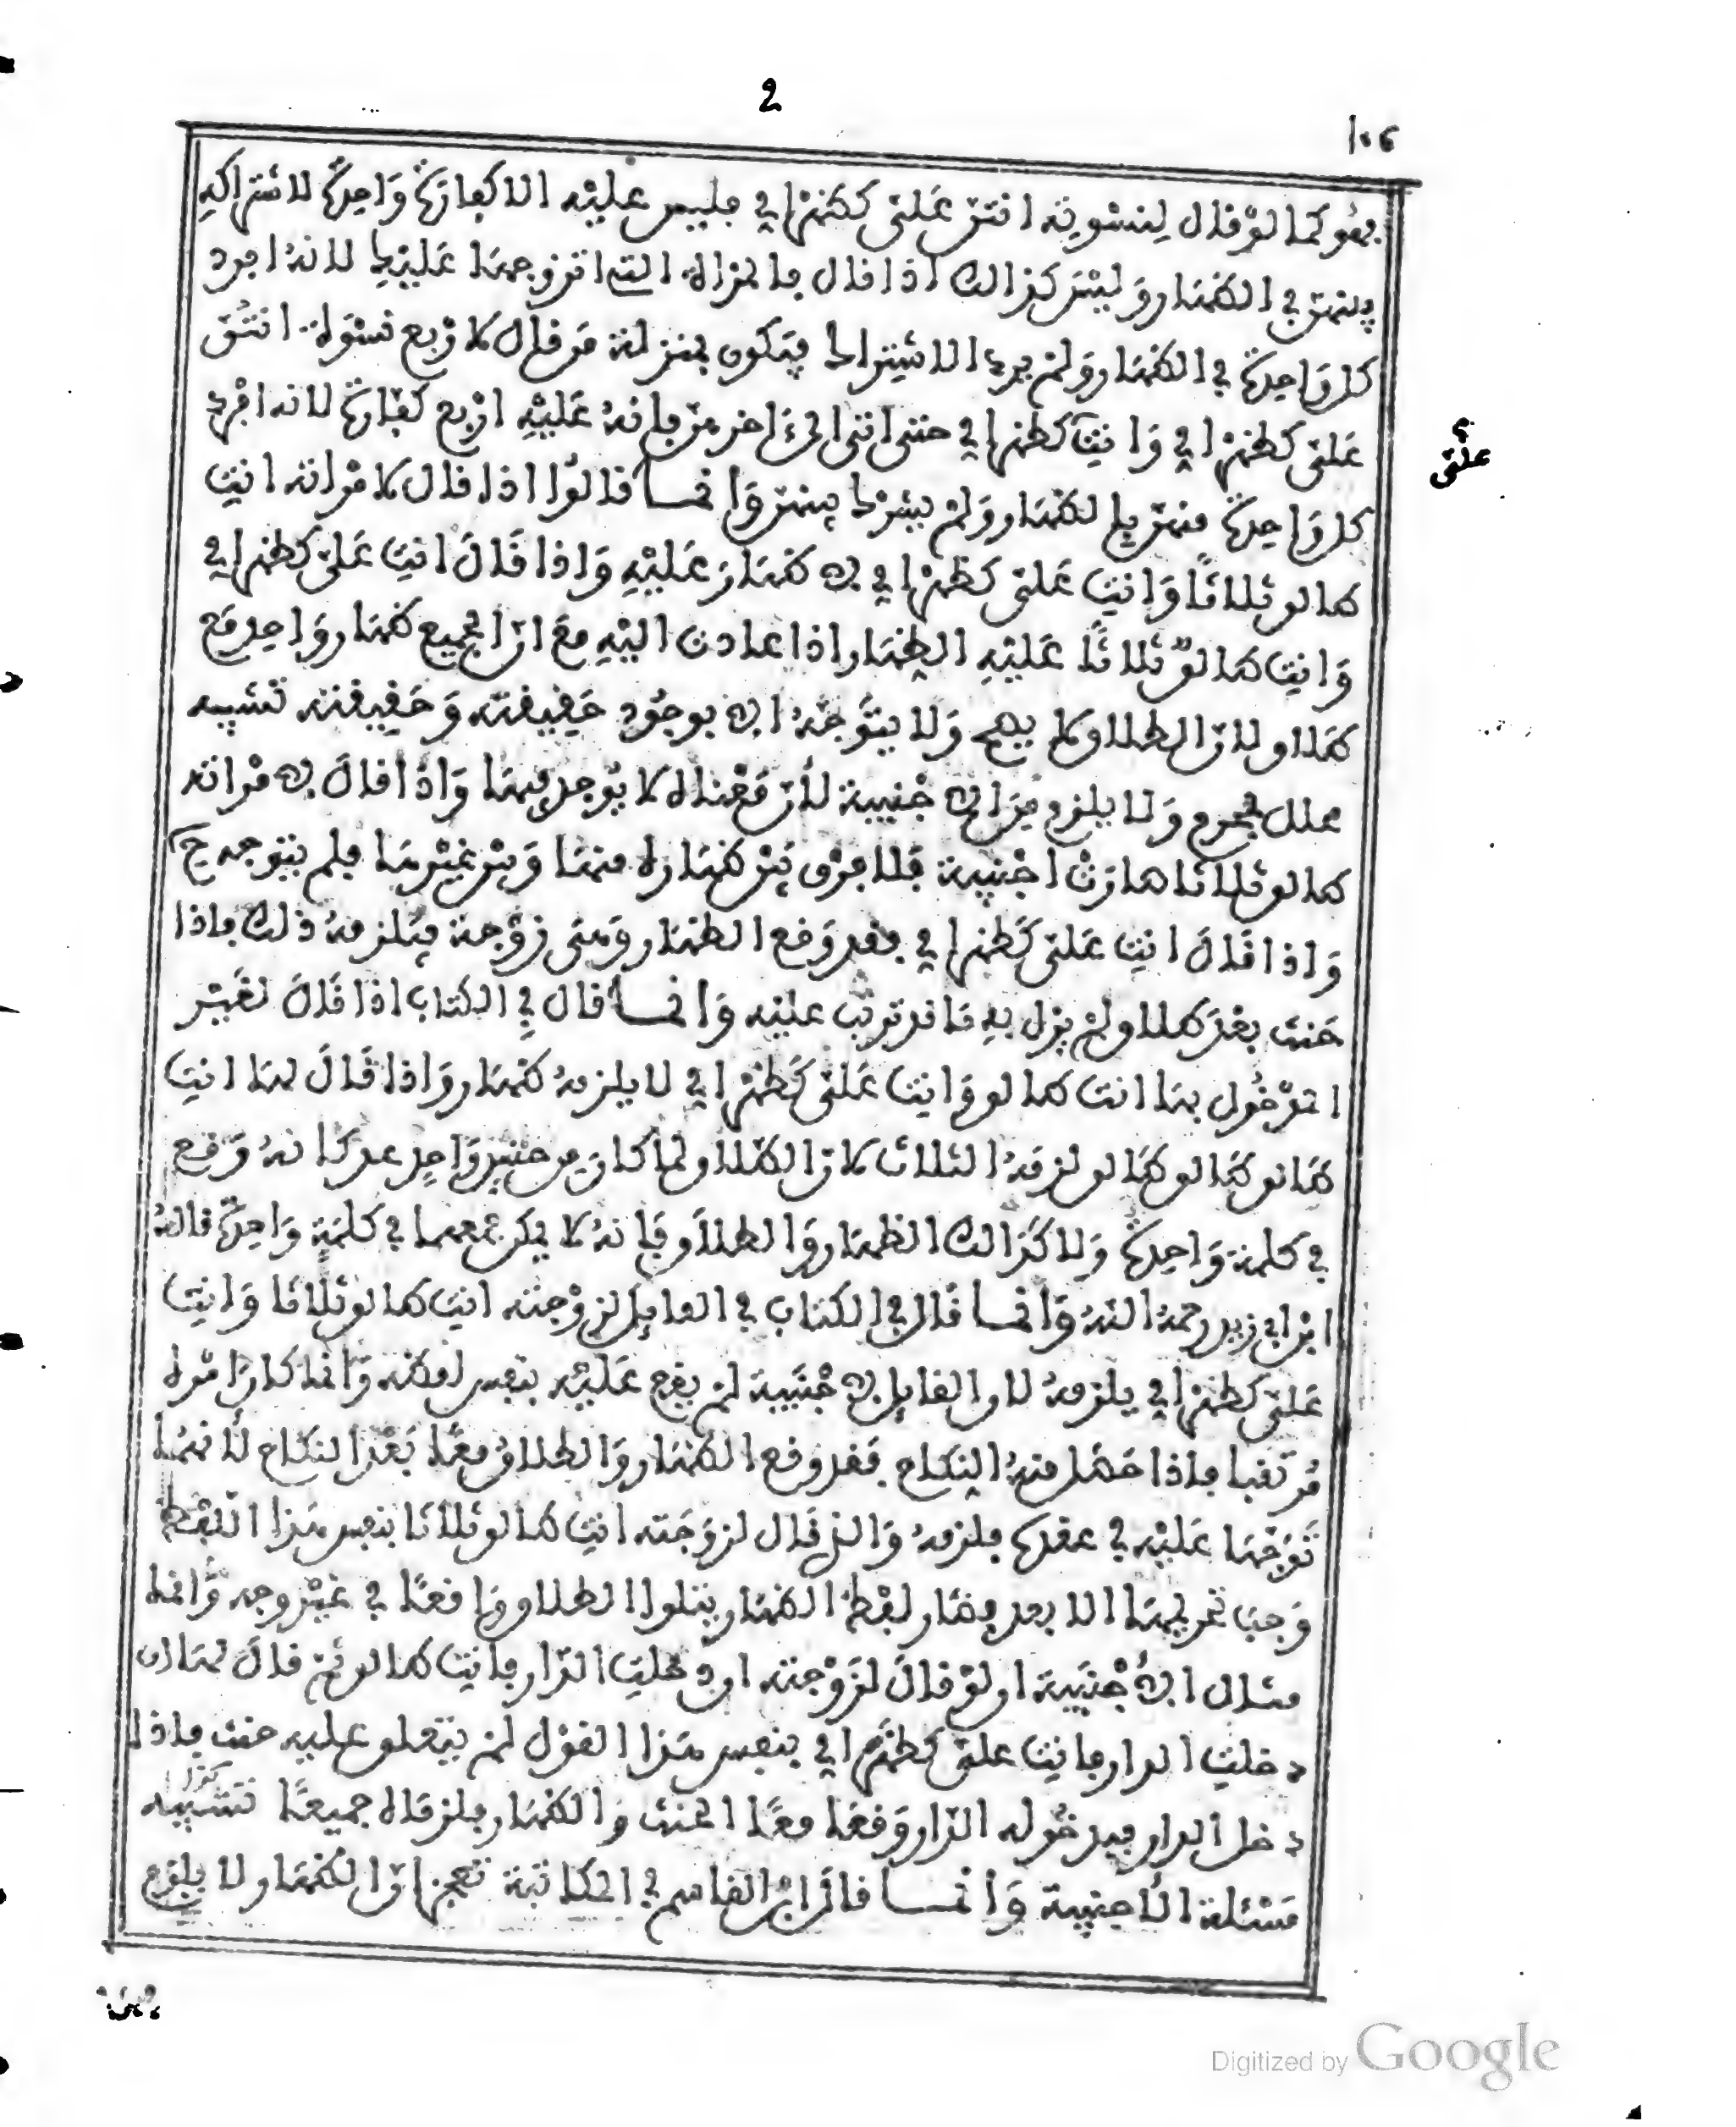 2
106
فهو كما لو قال لنسوته انتن علي كظهر امي فليس عليه الا كفارة واحدة لاشتراكه
بينهن في الظهار وليس كذالك اذا قال ما نزاه التي اتزوجها عليك لانه افرد
كل واحدة في الظهار ولم يرد الاشتراك فتكون بمنزلة من قال لاربع نسوة انتن
علي كظهر امي وانت كظهر امي حتى اتى الى ءاخرهن فانه عليه اربع كفارة لانه افرد
كل واحدة منهن بالظهار ولم يشرك بينهن وانما قالوا اذا قال لامراته انت
طالو ثلاثا وانت علي كظهر امي لا ظهار عليه واذا قال انت علي كظهر امي
وانت طالو ثلاثا عليه الظهار اذا عادت اليه مع ان الجميع ظهار واحد مع
طلاو لان الطلاو لم يصح ولا يتوجه الا بوجود حقيقته وحقيقته تشبيه
محلل بمحرم ولا يلزم من الاجنبية لان معناه لا يوجد فيها واذا قال لامراته
طالو ثلاثا صارت اجنبية فلا فرق بين ظهاره منها وبين غيرها فلم يتوجه ح
واذا قال انت علي كظهر امي فقد وقع الظهار وهي زوجة فيلزمه ذلك فاذا
حنث بعد طلاو لم يزل به ما قد ترتب عليه وانما قال في الكتاب اذا قال لغير
المدخول بها انت طالو وانت علي كظهر امي لا يلزمه ظهار واذا قال لها انت
طالو طالو طالو لزمه الثلاث لان الطلاو لما كان من جنس واحد عد كانه وقع
في كلمة واحدة ولا كذالك الظهار والطلاو فانه لا يمكن جمعهما في كلمة واحدة قاله
ابن ابي زيد رحمه الله وانما قال في الكتاب في القايل لزوجته انت طالو ثلاثا وانت
علي كظهر امي يلزمه لان القايل لاجنبية لم يقع عليه بنفس لفظه وانما كان امره
مرتقبا فاذا حصل منه النكاح فقد وقع الظهار والطلاو معا بعد النكاح لانهما
توجها عليه في عقدة فلزمه والذي قال لزوجته انت طالو ثلاثا بنفس هذا اللفظ
وجب تحريمها الا بعد فصار لفظ الظهار يتلوا الطلاو واقعا في غير وجه وانما
مثال الاجنبية ان لو قال لزوجته ان دخلت الدار فانت طالو ثم قال لها ان
دخلت الدار فانت علي كظهر امي بنفس هذا القول لم يتعلو عليه حنث فاذا
دخل الدار فبدخوله الدار وقعا معا الحنث والظهار فلزماه جميعا تشبيه
مسئلة الاجنبية وانما قال ابن القاسم في المكاتبة تعجز ان الظهار لا يلزم
علي